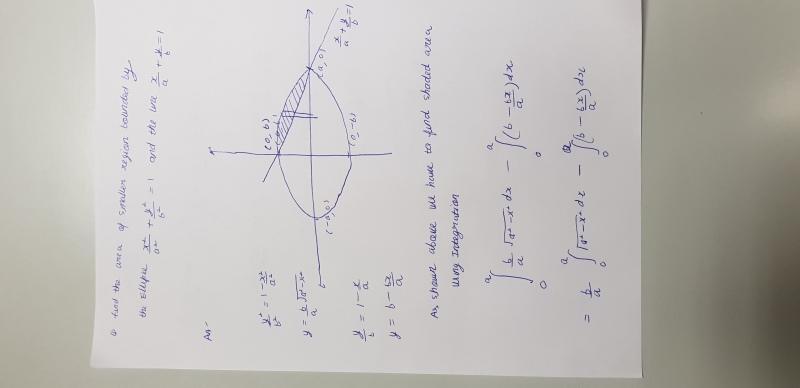 Q find the area of smaller region bounded by
the Ellipse x²/a² + y²/b² = 1 and the line x/a + y/b = 1
Ans-
(0, b)
(-a, 0)
(a, 0)
(0, -b)
x/a + y/b = 1
y²/b² = 1 - x²/a²
y = b/a √a²-x²
y/b = 1 - x/a
y = b - bx/a
As, shown above we have to find shaded area
using Integration
∫₀ᵃ b/a √a²-x² dx - ∫₀ᵃ (b - bx/a) dx
= b/a ∫₀ᵃ √a²-x² dx - ∫₀ᵃ (b - bx/a) dx